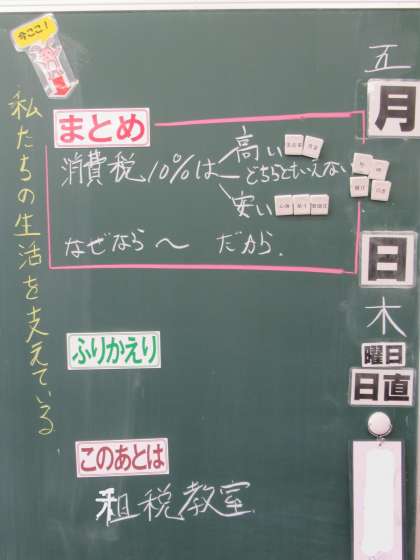 五
月
日
木
曜日
日直
今ここ!
私たちの生活を支えている。
まとめ
消費税10%は
高い
どちらともいえない
安い
なぜなら〜だから。
ふりかえり
このあとは
租税教室